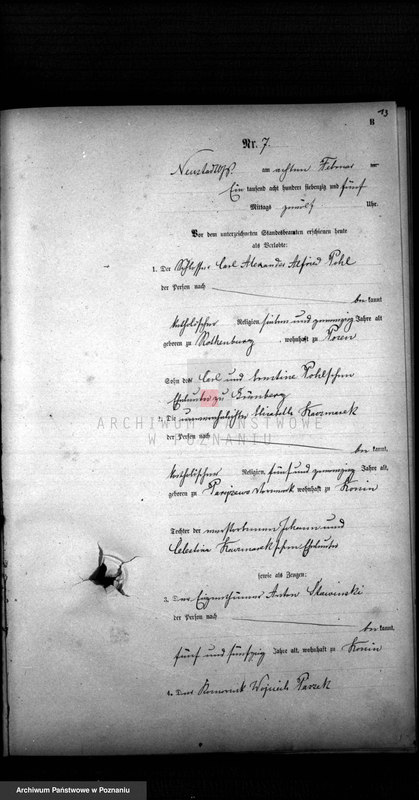 13
B
Nr. 7.
Neustadt W/P. am achten Februar
Ein tausend acht hundert siebenzig und fünf
Mittags zwölf Uhr.
Vor dem unterzeichneten Standesbeamten erschienen heute
als Verlobte:
1. Der Schlosser Carl Alexander Alfred Pohl
der Person nach
be kannt
katholischer Religion, sieben und zwanzig Jahre alt
geboren zu Rothenburg, wohnhaft zu Posen
Sohn des Carl und Ernstine Pohlschen
Eheleute zu
2. Die unverehelichte Kaczmarek
ARCHIWUM PAŃSTWOWE
W POZNANIU
der Person nach
be kannt,
katholischer Religion, fünf und zwanzig Jahre alt,
geboren zu wohnhaft zu Konin
Tochter der verstorbenen Johann und
Celestina Kaczmarek'schen Eheleute
sowie als Zeugen:
3. Der Eigenthümer Anton Slawinski
der Person nach
be kannt,
fünf und fünfzig Jahre alt, wohnhaft zu Konin
4. Der Komornik Wojciech
Archiwum Państwowe w Poznaniu